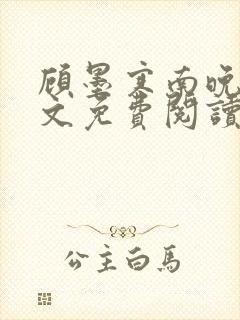 顾墨寒南晚
文免費閱讀
公主白馬